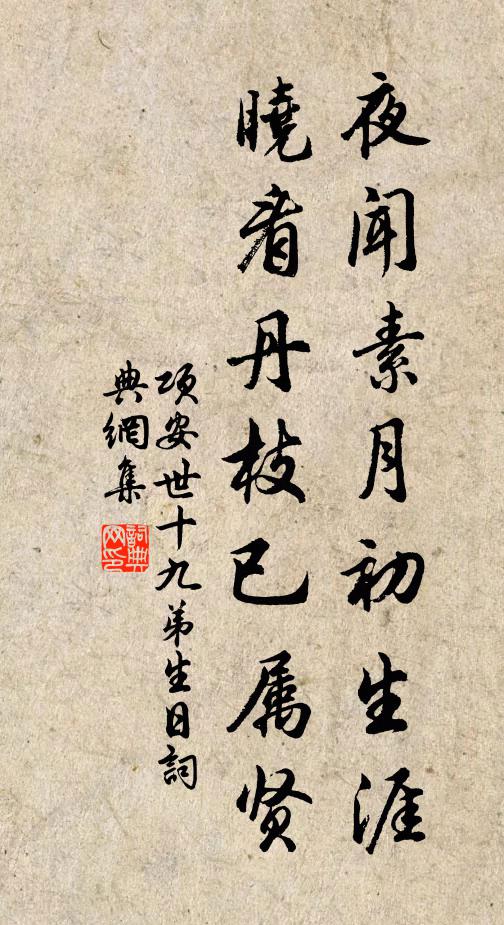 夜闻素月初生涯
曉看丹枝已属贤
项安世十九弟生日詞
典網集
詞典
网印